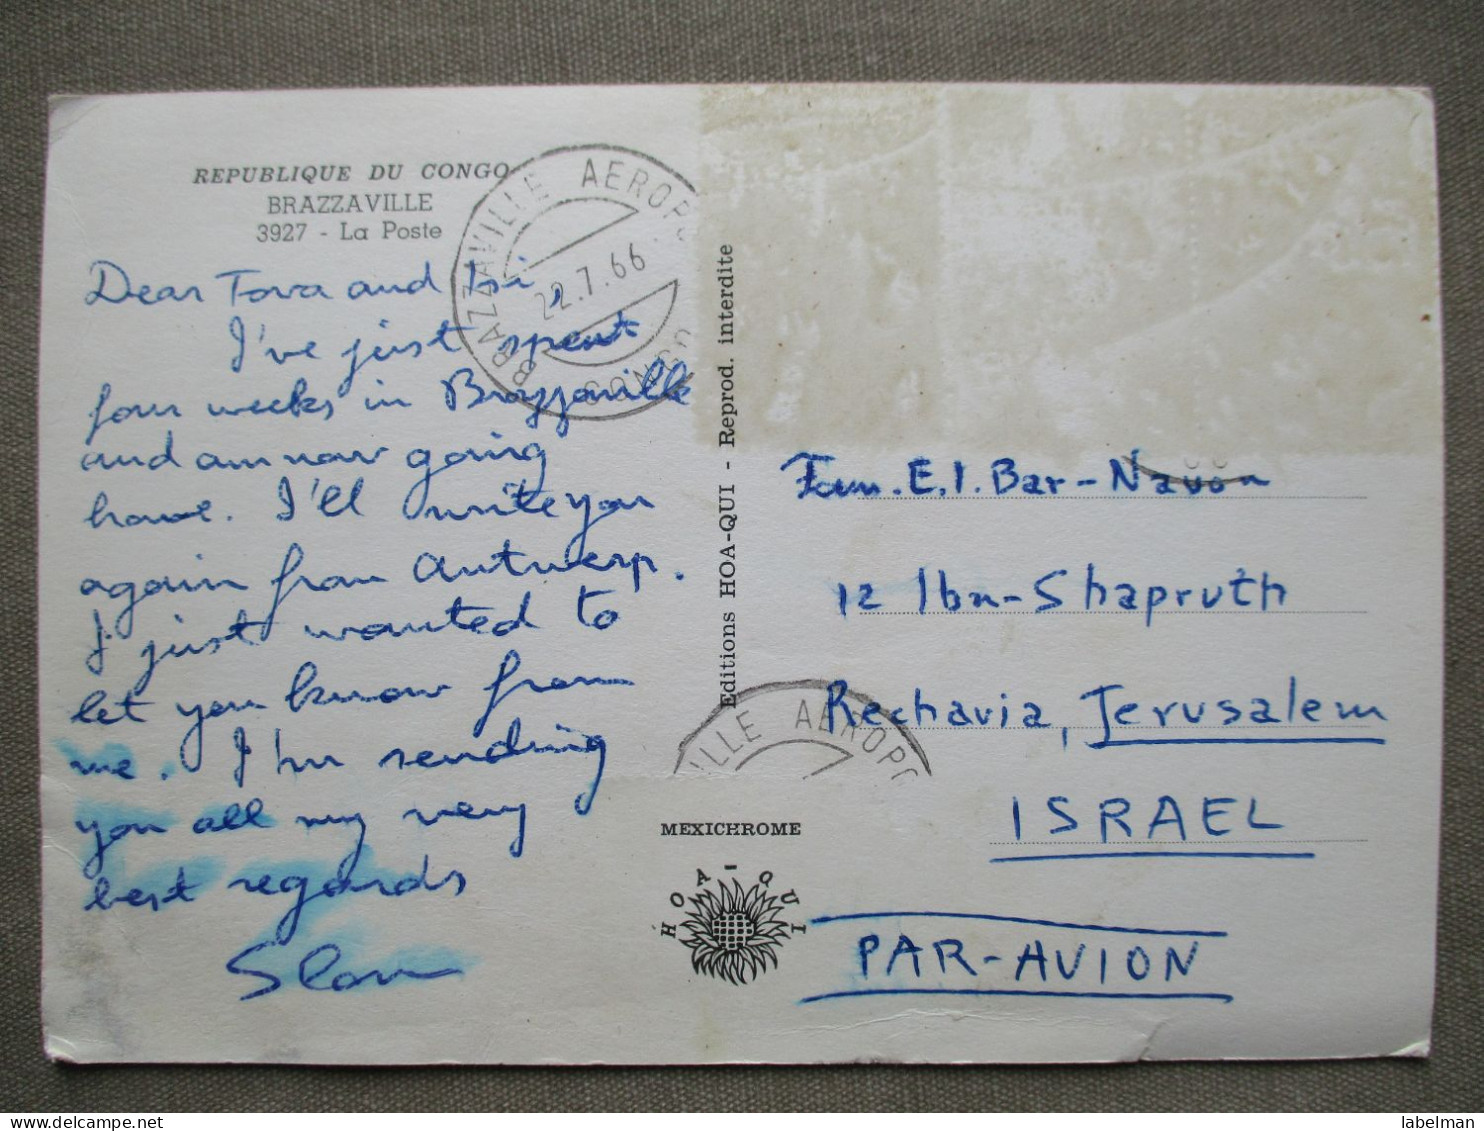 REPUBLIQUE DU CONGO
BRAZZAVILLE
3927 - La Poste
BRAZZAVILLE AEROP
22.7.66
CONGO
Dear Tova and
I've just spent
four weeks in Brazzaville
and am now going
home. I'll write you
again from Antwerp.
I just wanted to
let you know from
me. I'm sending
you all my very
best regards
Editions HOA-QUI - Reprod. interdite
Fam. E.I. Bar-Navon
12 Ibn-Shapruth
Rechavia, Jerusalem
ISRAEL
PAR-AVION
VILLE AEROPO
MEXICHROME
HOA-QUI
labelman